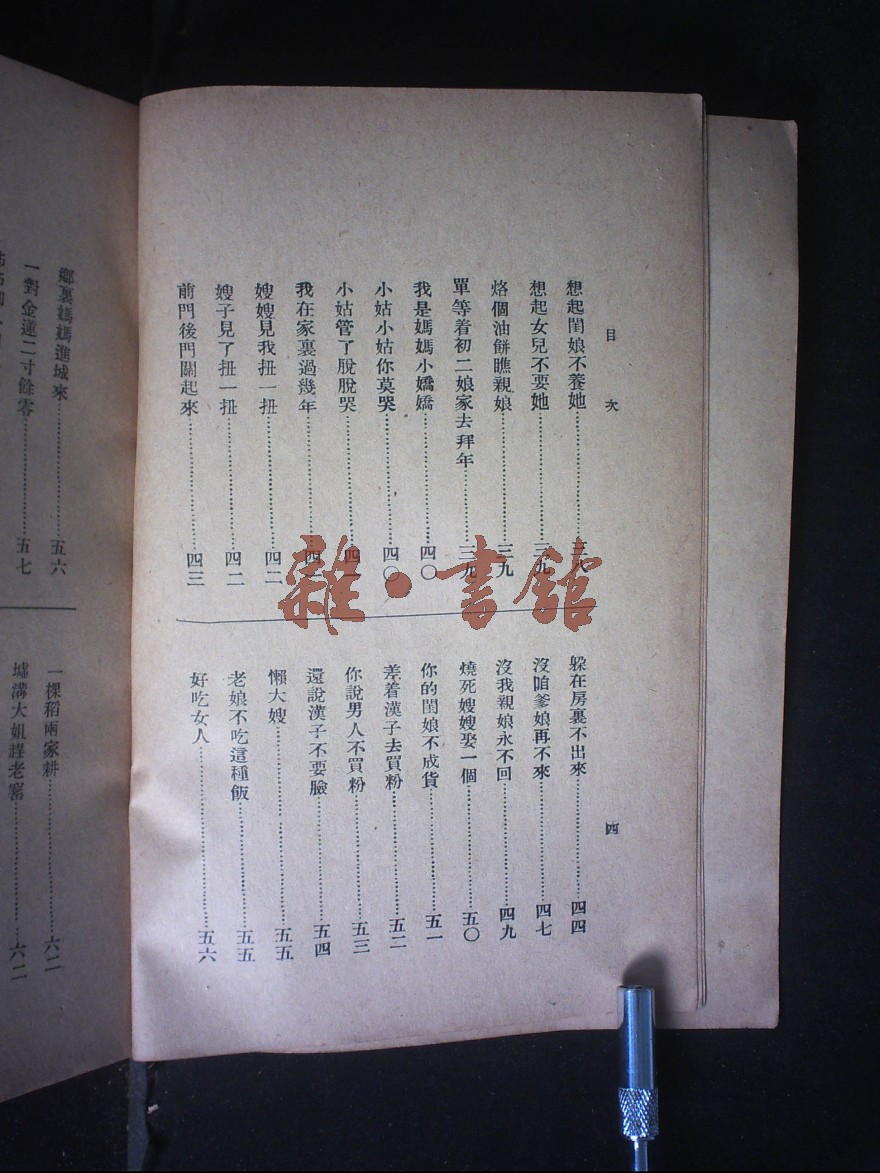 目次
想起閨娘不養她…………三八
想起女兒不要她…………三九
烙個油餅瞧親娘…………三九
單等着初二娘家去拜年…………三九
我是媽媽小嬌嬌…………四〇
小姑小姑你莫哭…………四〇
小姑管了脫脫哭…………四一
我在家裏過幾年…………四一
嫂嫂見我扭一扭…………四二
嫂子見了扭一扭…………四二
前門後門關起來…………四三
躲在房裏不出來…………四四
沒咱爹娘再不來…………四七
沒我親娘永不回…………四九
燒死嫂嫂娶一個…………五〇
你的閨娘不成貨…………五一
差着漢子去買粉…………五二
你說男人不買粉…………五三
還說漢子不要臉…………五四
懶大嫂…………五五
老娘不吃這種飯…………五五
好吃女人…………五六
四
鄉裏媽媽進城來…………五六
一對金蓮二寸餘零…………五七
一棵稻兩家耕…………六二
墟溝大姐趕老窰…………六二
雜·書館